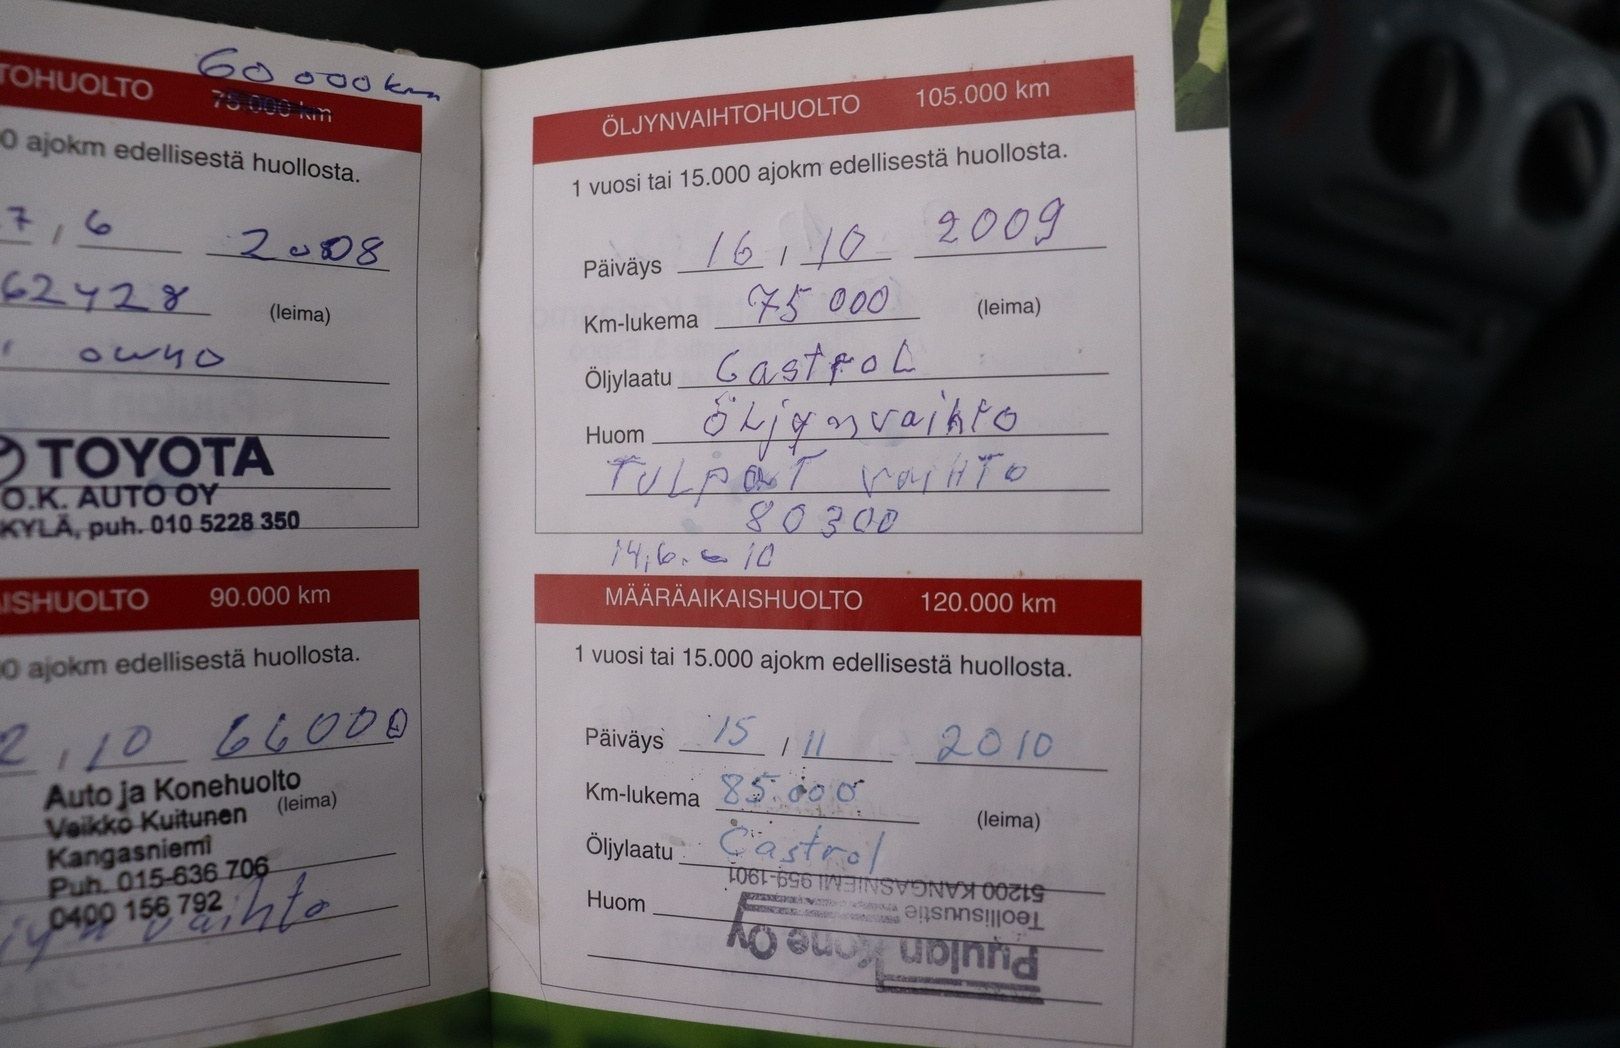 60 000 km
TOHUOLTO 75.000 km
0 ajokm edellisestä huollosta.
7 / 6 2008
62428 (leima)
TOYOTA
O.K. AUTO OY
KYLÄ, puh. 010 5228 350
AISHUOLTO 90.000 km
0 ajokm edellisestä huollosta.
2 / 10 66000
Auto ja Konehuolto
Veikko Kuitunen (leima)
Kangasniemi
Puh. 015-636 706
0400 156 792
jyn vaihto
ÖLJYNVAIHTOHUOLTO 105.000 km
1 vuosi tai 15.000 ajokm edellisestä huollosta.
Päiväys 16 / 10 2009
Km-lukema 75 000 (leima)
Öljylaatu Castrol
Huom öljynvaihto
TULPAT vaihto
80300
14.6. 10
MÄÄRÄAIKAISHUOLTO 120.000 km
1 vuosi tai 15.000 ajokm edellisestä huollosta.
Päiväys 15 / 11 2010
Km-lukema 85.000 (leima)
Öljylaatu Castrol
Huom
Puulan Kone Oy
Teollisuustie
51200 KANGASNIEMI 959-1901